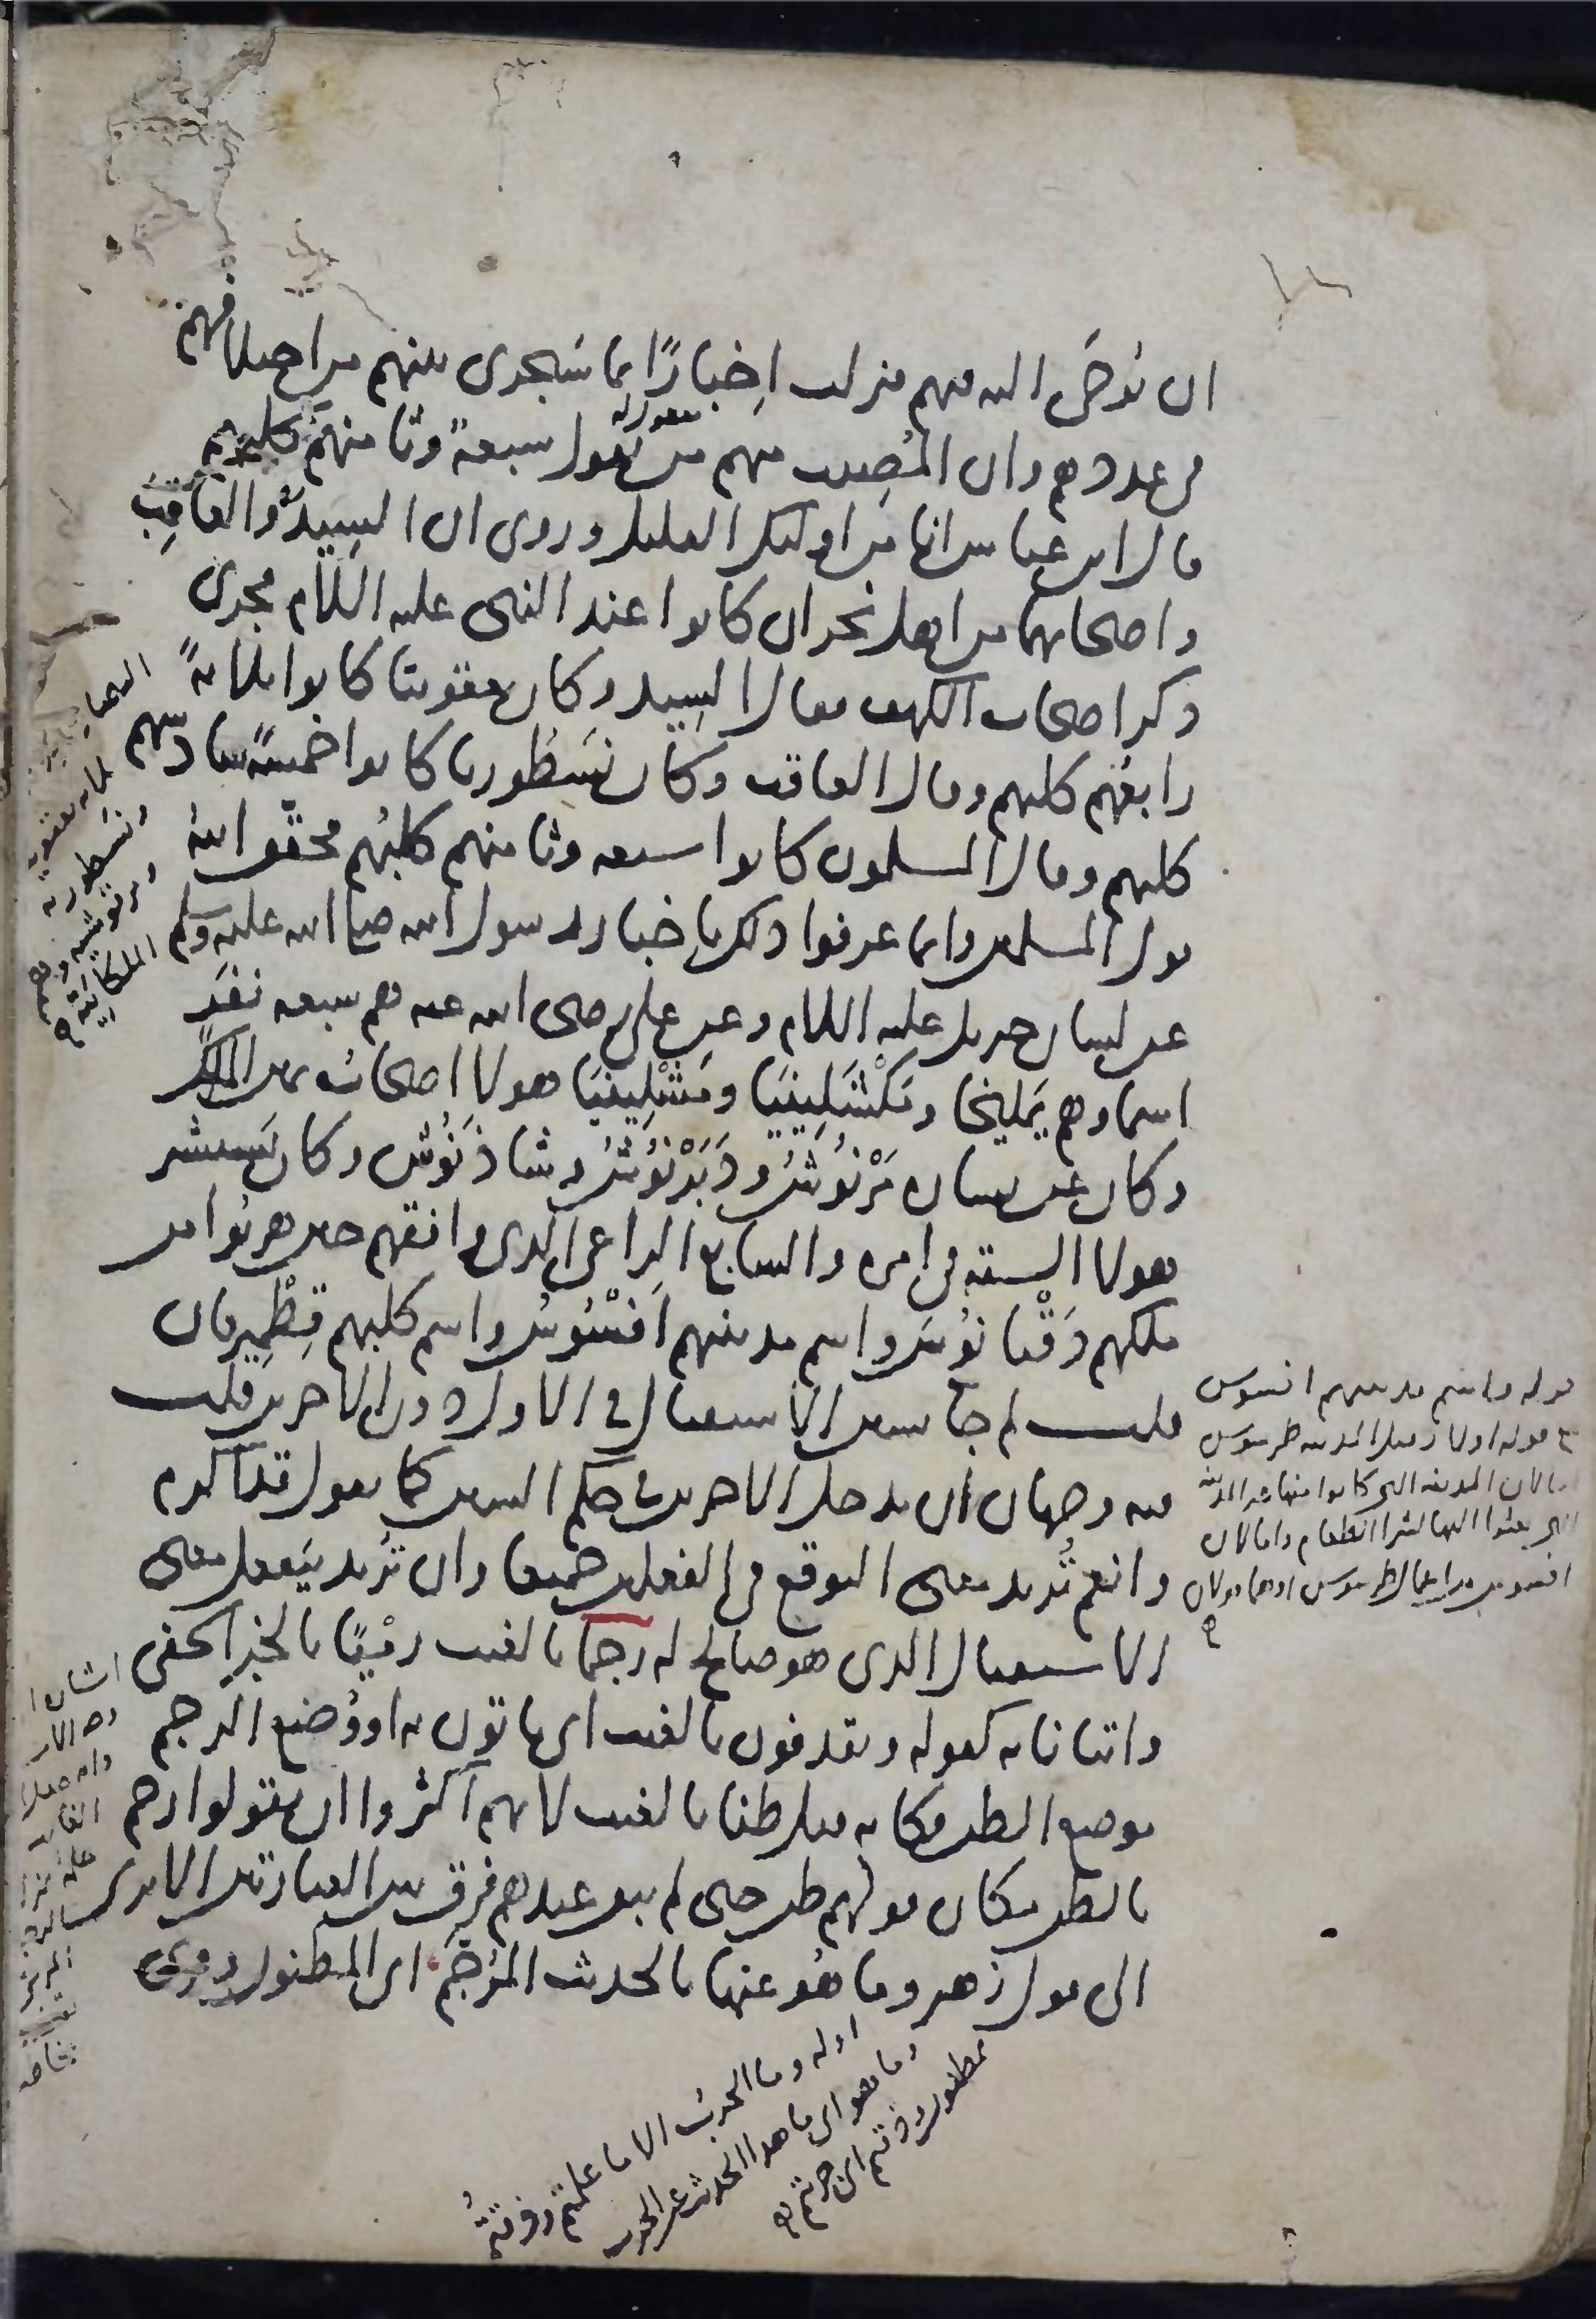 ان يوحى اليه فيهم فنزلت اخبارًا بما سيجرى بينهم من اختلافهم
فى عددهم وان المصيب منهم من يقول سبعة وثامنهم كلبهم
قال ابن عباس انا من اولئك القليل وروى ان السيد والعاقب
واصحابهما من اهل نجران كانوا عند النبى عليه السلام فجرى
ذكر اصحاب الكهف فقال السيد وكان يعقوبيا كانوا ثلاثةً
رابعُهم كلبهم وقال العاقب وكان نسطوريا كانوا خمسةً سادسهم
كلبهم وقال المسلمون كانوا سبعه وثامنهم كلبُهم فحقق الله
قول المسلمين وانما عرفوا ذلك باخبار رسول الله صلى الله عليه وسلم
عن لسان جبريل عليه السلام وعن على رضى الله عنه هم سبعه نفر
اسماوهم يَمليخا ومَكْشَلِينيَا ومَشْلِينِيَا هولا اصحاب يمين الملك
وكان عن يساره مَرْنُوش ودَبَرْنُوش وشاذَنُوش وكان يستشير
هولا الستة فى امره والسابع الراعى الذى وافقهم حين هربُوا من
ملكهم دَقْيانُوس واسم مدينتهم اَفْسُوس واسم كلبهم قِطْمِير فان
قلت لم جا بسين الاستقبال فى الاول دون الاخرين قلت
فيه وجهان ان يدخل الاخرين فى حكم السين كما يقول قد اكرم
وانعم تُريد معنى التوقع فى الفعلين جميعا وان تُريد بيَفعل معنى
الاستقبال الذى هو صالح له رجما بالغيب رميًا بالخبر الخفى
واتيانا به كقوله ويقذفون بالغيب اى ياتون به او وُضع الرجم
موضع الظن فكانه قيل ظنا بالغيب لانهم اكثروا ان يقولوا رجم
بالظن مكان قولهم ظن حتى لم يبق عندهم فرق بين العبارتين الا ترى
الى قول زهير وما هُو عنها بالحديث المُرَجَّم اى المظنون وقرى
بقول
ثلاثه يعقوبيه
ونسطوريه
ومرقوشيه وهم
الملكانية
قوله واسم مدينتهم افسوس
قوله اولا وقيل المدينه طرسوس
اما لان المدينه التى كانوا منها غير المدينة
التى بعثوا اليها لشرا الطعام واما لان
افسوس من اعمال طرسوس او هما قولان
اوله وما الحرب الا ما علمتم وذقتمُ
وما هو اى ما هذا الحديث عن الحرب
بمظنون وذقتم اى جربتم